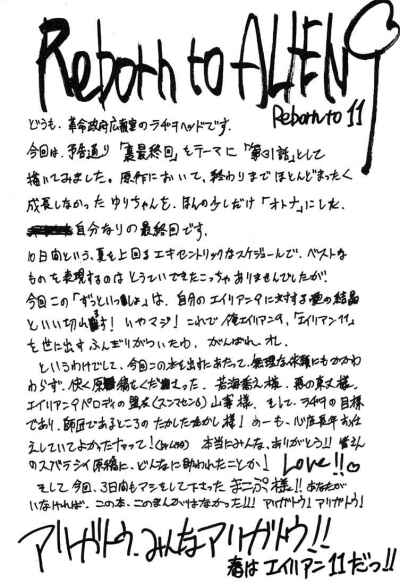 Reborn to ALIEN9
Reborn to 11
どうも、革命政府広報室のラヂヲヘッドです。
今回は、予告通り「裏最終回」をテーマに「第31話」として
描いてみました。原作において、終わりまでほとんどまったく
成長しなかったゆりちゃんを、ほんの少しだけ「オトナ」にした、
自分なりの最終回です。
10日間という、夏を上回るエキセントリックなスケジュールで、ベストな
ものを表現するのはとうていできたこっちゃありませんでしたが、
今回この「ずっといっしょ」は、自分のエイリアン9に対する愛の結晶
といい切れます! いやマジ! これで俺エイリアン9、「エイリアン11」
を世に出すふんぎりがついたわ、がんばれ、オレ。
というわけでして、今回この本を出すにあたって、無理な依頼にもかかわ
わらず、快く原稿をくださった、若海香え様、
エイリアン9パロディの盟友(スンマセン)山
であり、師匠であるところのたかしたたかし様! うーも、
えしていてよかったナァって! 本当にみんな、ありがとう!! 皆さん
のスバラシイ原稿に、どんなに助われたことか! Love!!♡
そして今回、3日間もアシをして下さったまこぷ様!! あなたが
いなければ、この本、このまんがはなかった!!! アリガトウ! アリガトウ!
アリガトウ、みんなアリガトウ!!
春はエイリアン11だっ!!